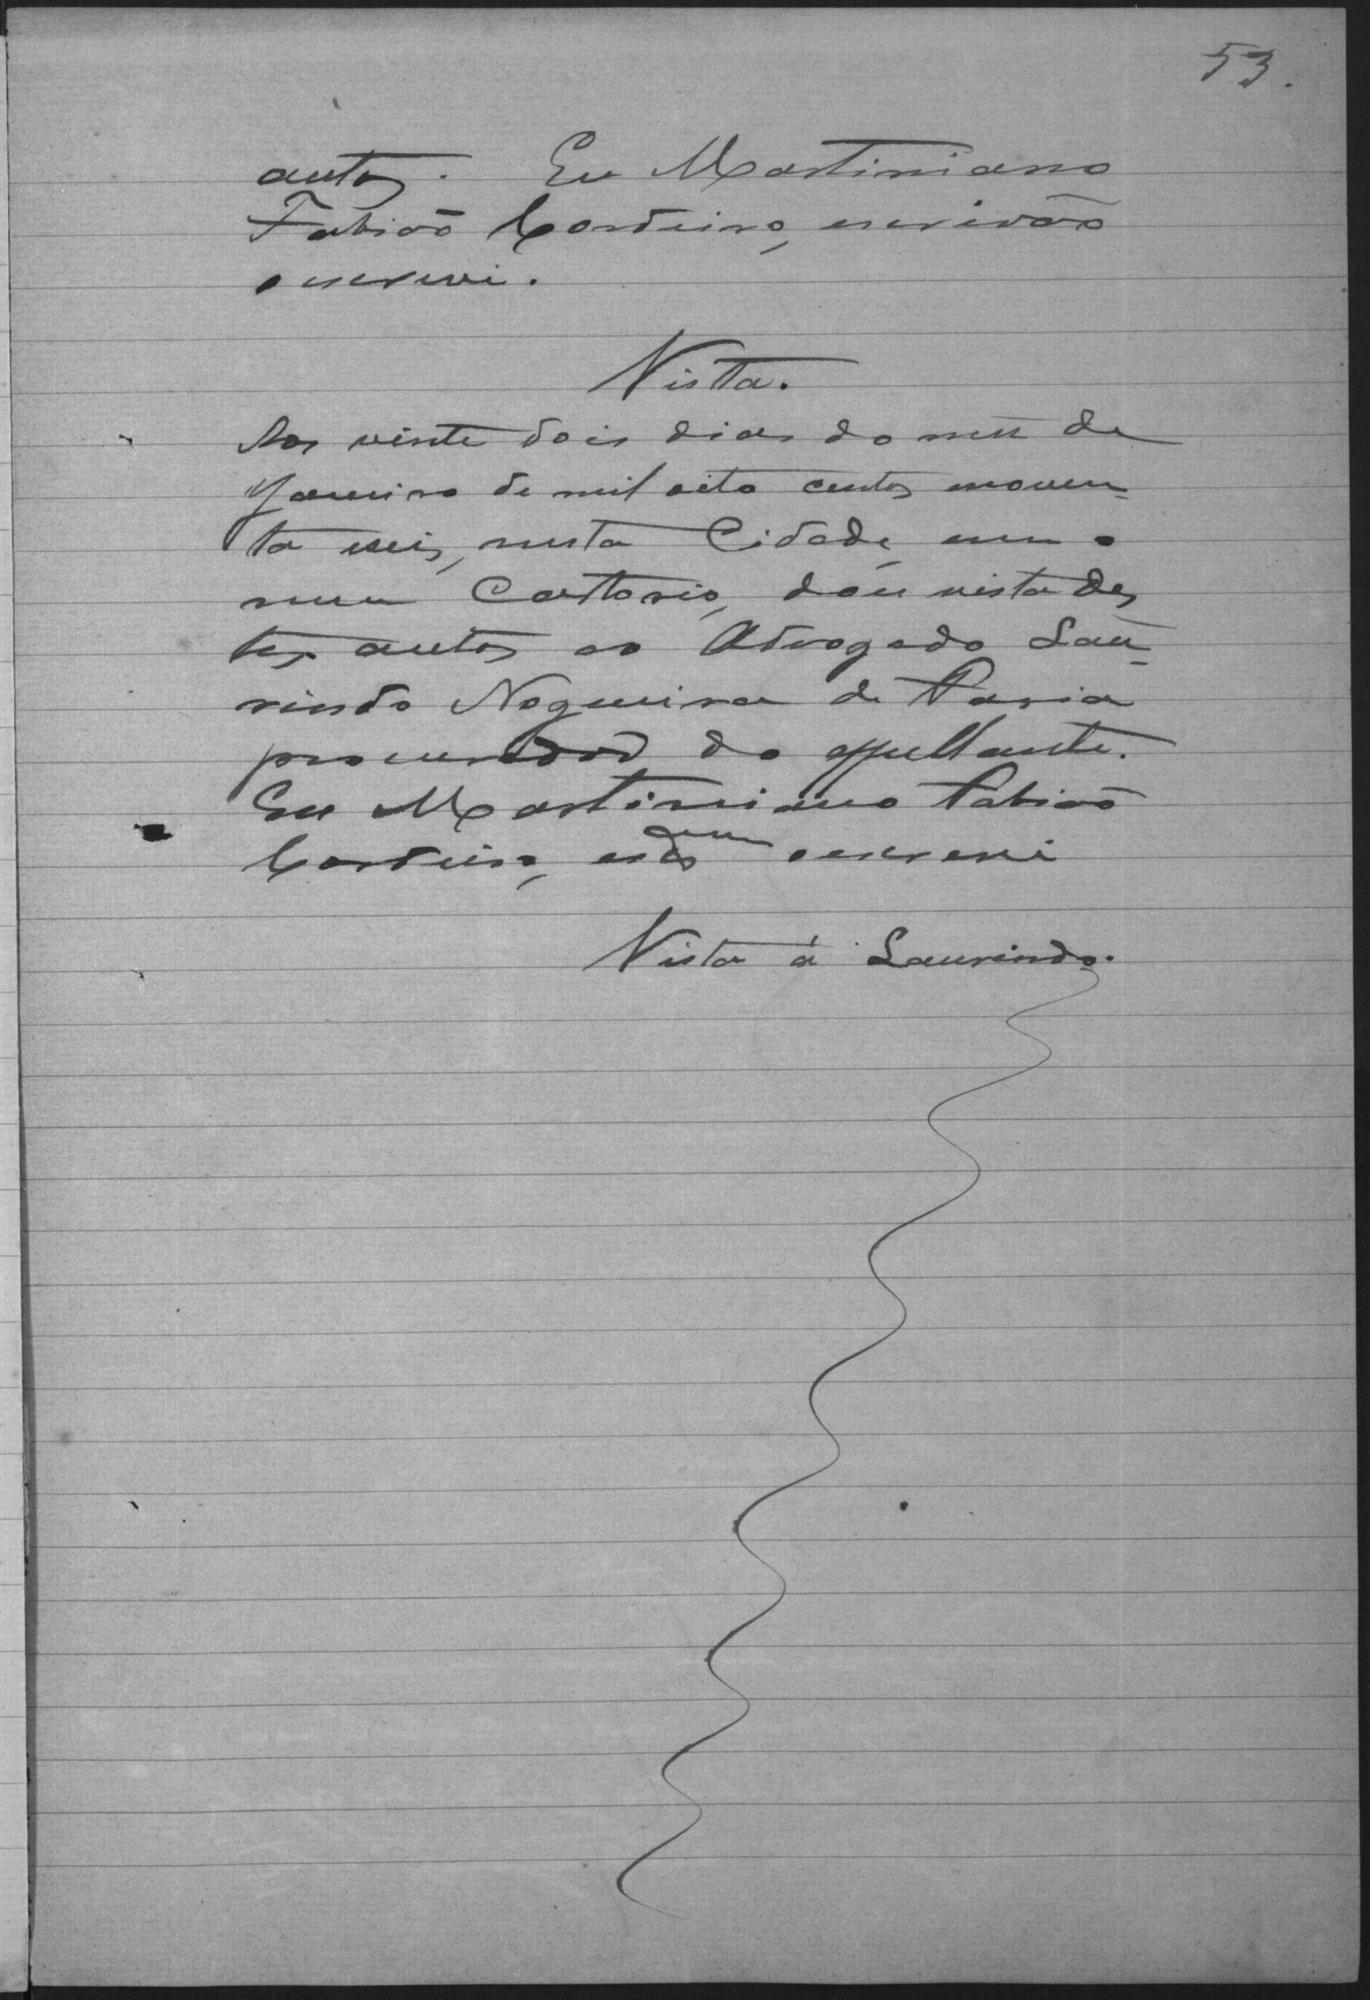 53.
autos. Eu Martiniano
Fabião Cordeiro, escrivão
o escrevi.
Vista.
Aos vinte dois dias do mez de
Janeiro de mil oito centos e noven-
ta e seis, nesta Cidade, em o
meu Cartorio, dou vista des
tes autos ao Advogado Lau-
rindo Nogueira de Faria
procurador do appellante.
Eu Martiniano Fabião
Cordeiro, o escrevi
Vista á Laurindo.